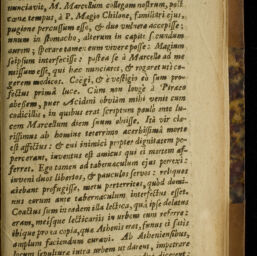 nunciavit, M. Marcellum collegam nostrum, post
cœnæ tempus, à P. Magio Chilone, familiari ejus,
pugione percussum esse, & duo vulnera accepisse:
unum in stomacho, alterum in capite secundum
aurem; sperare tamen eum vivere posse: Magium
seipsum interfecisse: postea se à Marcello ad me
missum esse, qui hæc nunciaret, & rogaret uti
medicos. Coegi, & è vestigio eò sum pro-
fectus prima luce. Cum non longè à Piræo
abessem, puer Acidini obviam mihi venit cum
codicillis, in quibus erat scriptum paulo ante lu-
cem Marcellum diem suum obiisse. Ita vir cla-
rissimus ab homine teterrimo acerbissima morte
est affectus: & cui inimici propter dignitatem pe-
percerant, inventus est amicus qui ei mortem af-
ferret. Ego tamen ad tabernaculum ejus perrexi:
inveni duos libertos, & pauculos servos: reliquos
aiebant profugisse, metu perterritos, quòd domi-
nus eorum ante tabernaculum interfectus esset.
Coactus sum in eadem illa lectica, qua ipse delatus
eram, meisque lecticariis in urbem eum referre:
ibique pro ea copia, quæ Athenis erat, funus ei satis
amplum faciendum curavi. Ab Atheniensibus,
locum sepulturæ intra urbem ut darent, impetrare